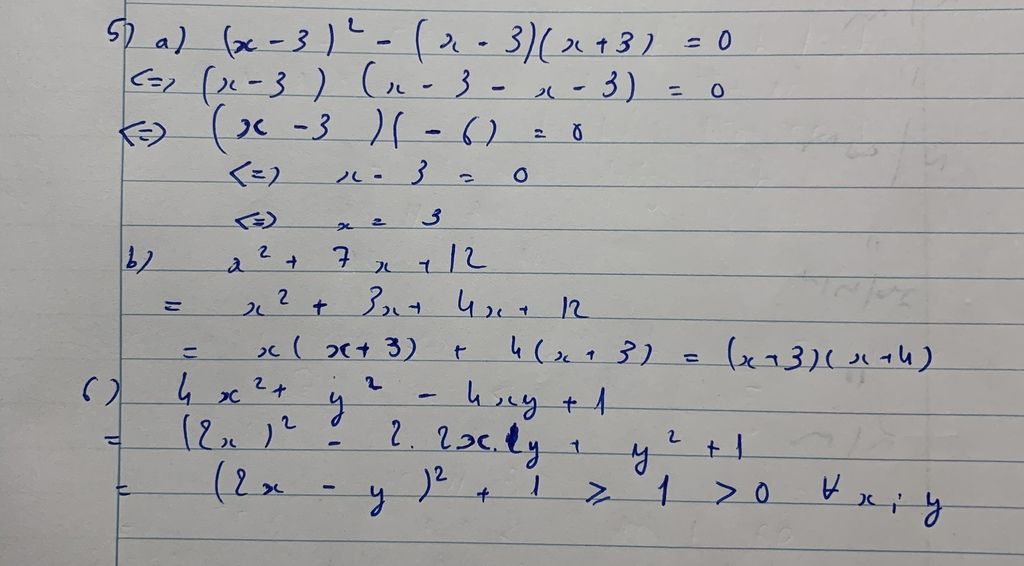 5) a) (x - 3)² - (x - 3)(x + 3) = 0
<=> (x - 3) (x - 3 - x - 3) = 0
<=> (x - 3)( - 6) = 0
<=> x - 3 = 0
<=> x = 3
b) x² + 7x + 12
= x² + 3x + 4x + 12
= x(x + 3) + 4(x + 3) = (x + 3)(x + 4)
6) 4x² + y² - 4xy + 1
= (2x)² - 2. 2x. y + y² + 1
= (2x - y)² + 1 ≥ 1 > 0 ∀ x; y